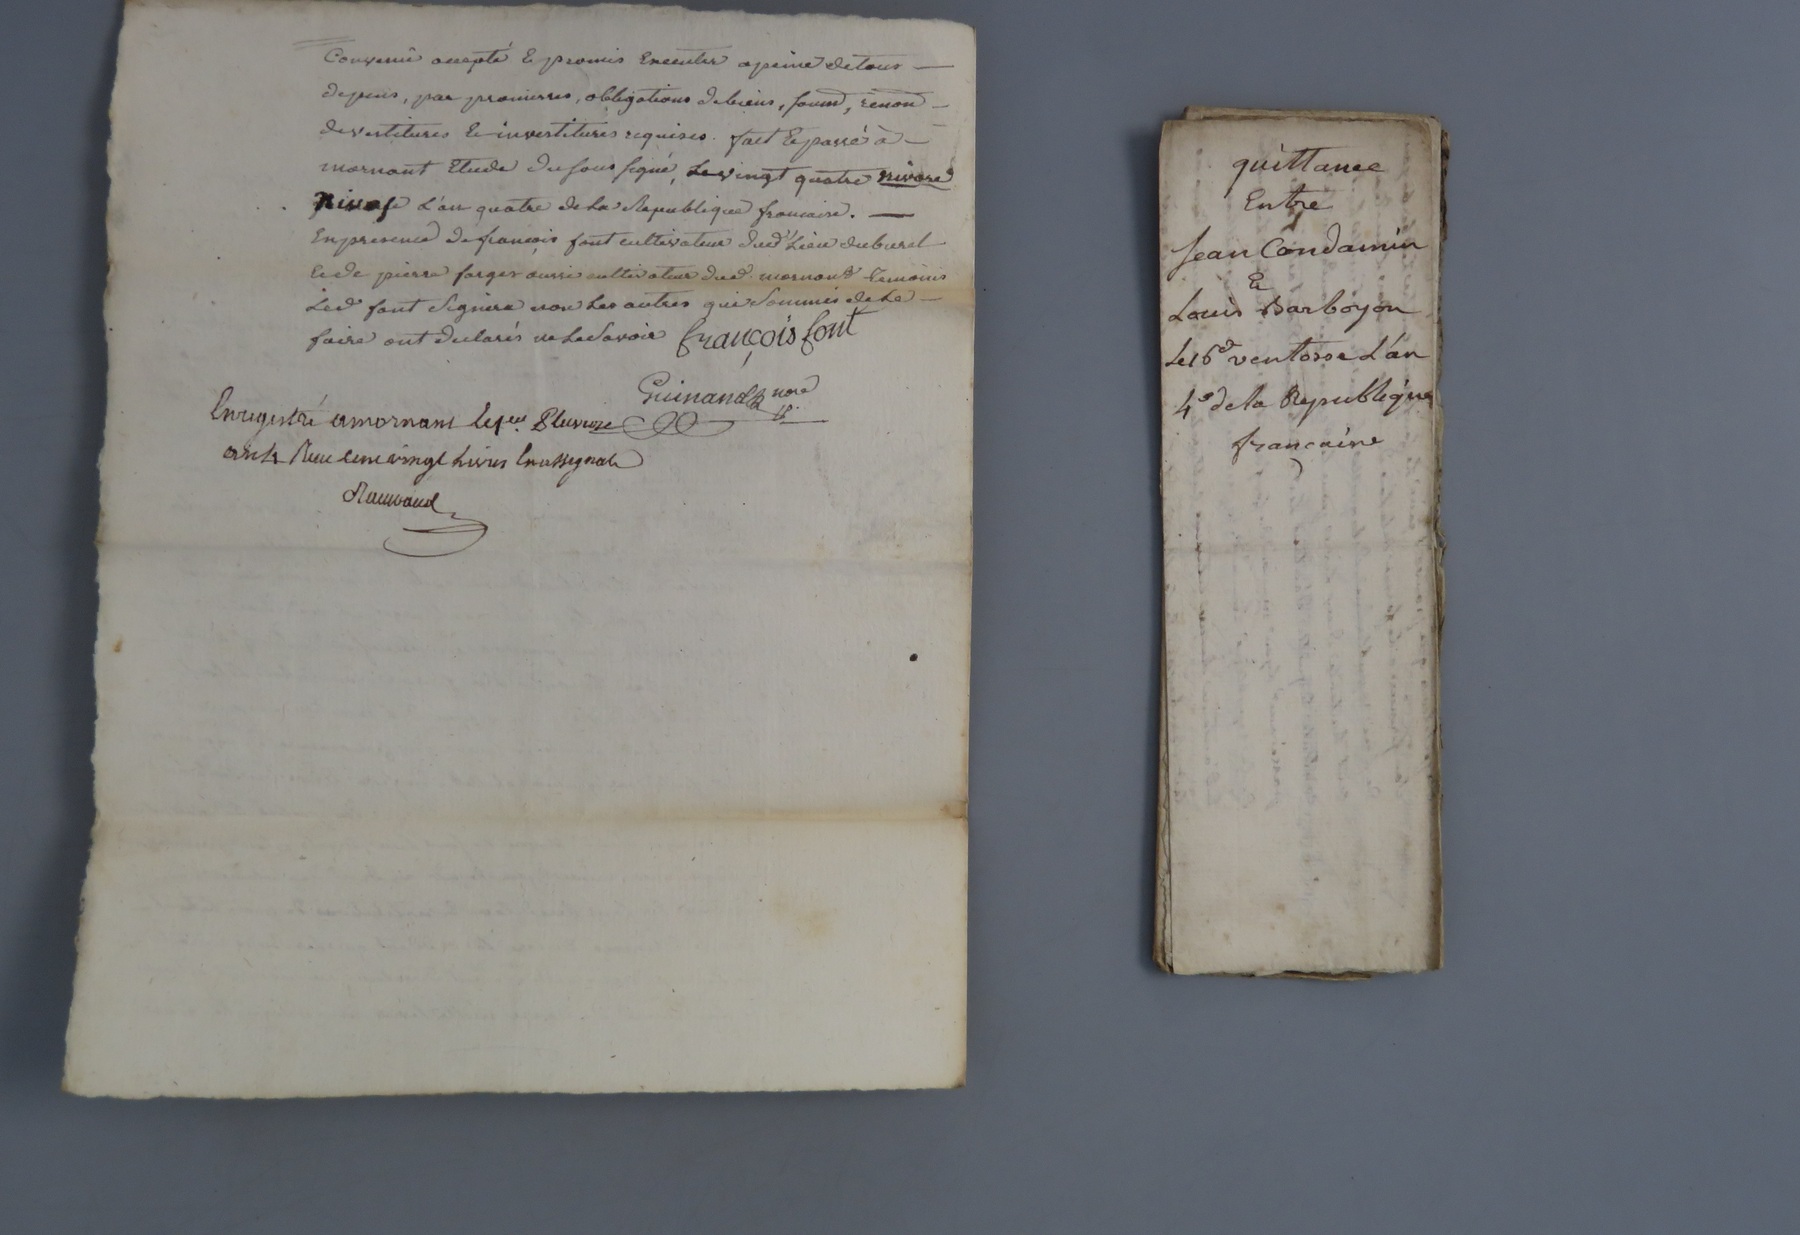 Convenu accepté & promis Executer apeine detous
depens, par promesses, obligations debiens, soum, renon
devestitures & investitures requises. fait & passé à
mornant Etude du sous signé, Le vingt quatre nivose
nivose L'an quatre dela Republique francaise.
En presence de françois font cultivateur dud. Lieu duburel
& de pierre farges aussi cultivateur dud. mornant Temoins
Led. font signéra non Les autres qui Sommés dele
faire ont declarés ne Le Savoir françois font
Guinand nore
Enregistré a mornant le Pluviose
an 4 Recu cent vingt Livres En assignats
quittance
Entre
Jean Condamin
&
Louis Barboyon
Le 16e ventose L'an
4e dela Republique
francaise